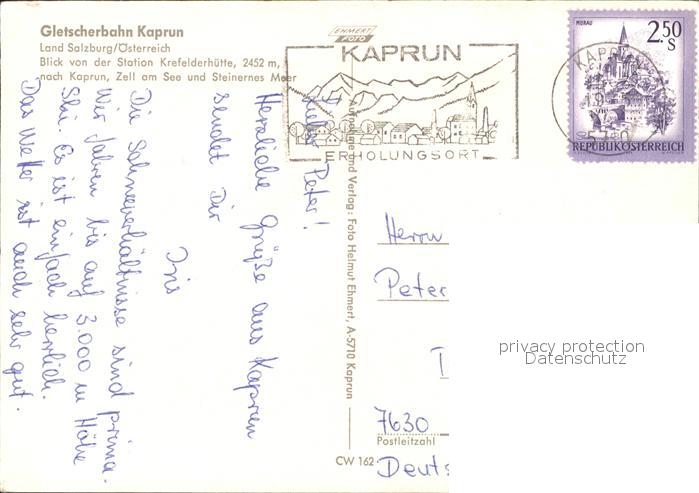 Gletscherbahn Kaprun
Land Salzburg/Österreich
Blick von der Station Krefelderhütte, 2452 m,
nach Kaprun, Zell am See und Steinernes Meer
EHMERT
FOTO
KAPRUN
ERHOLUNGSORT
MURAU
2.50
S
KAPRUN
5710
REPUBLIK ÖSTERREICH
Lieber Peter!
Herzliche Grüße aus Kaprun
sendet Dir
Iris
Die Schneeverhältnisse sind prima.
Wir fahren bis auf 3.000 m Höhe
Ski. Es ist einfach herrlich.
Das Wetter ist auch sehr gut.
Aufnahme und Verlag: Foto Helmut Ehmert, A-5710 Kaprun
Herrn
Peter
7630
Postleitzahl
Deuts
CW 162
privacy protection
Datenschutz